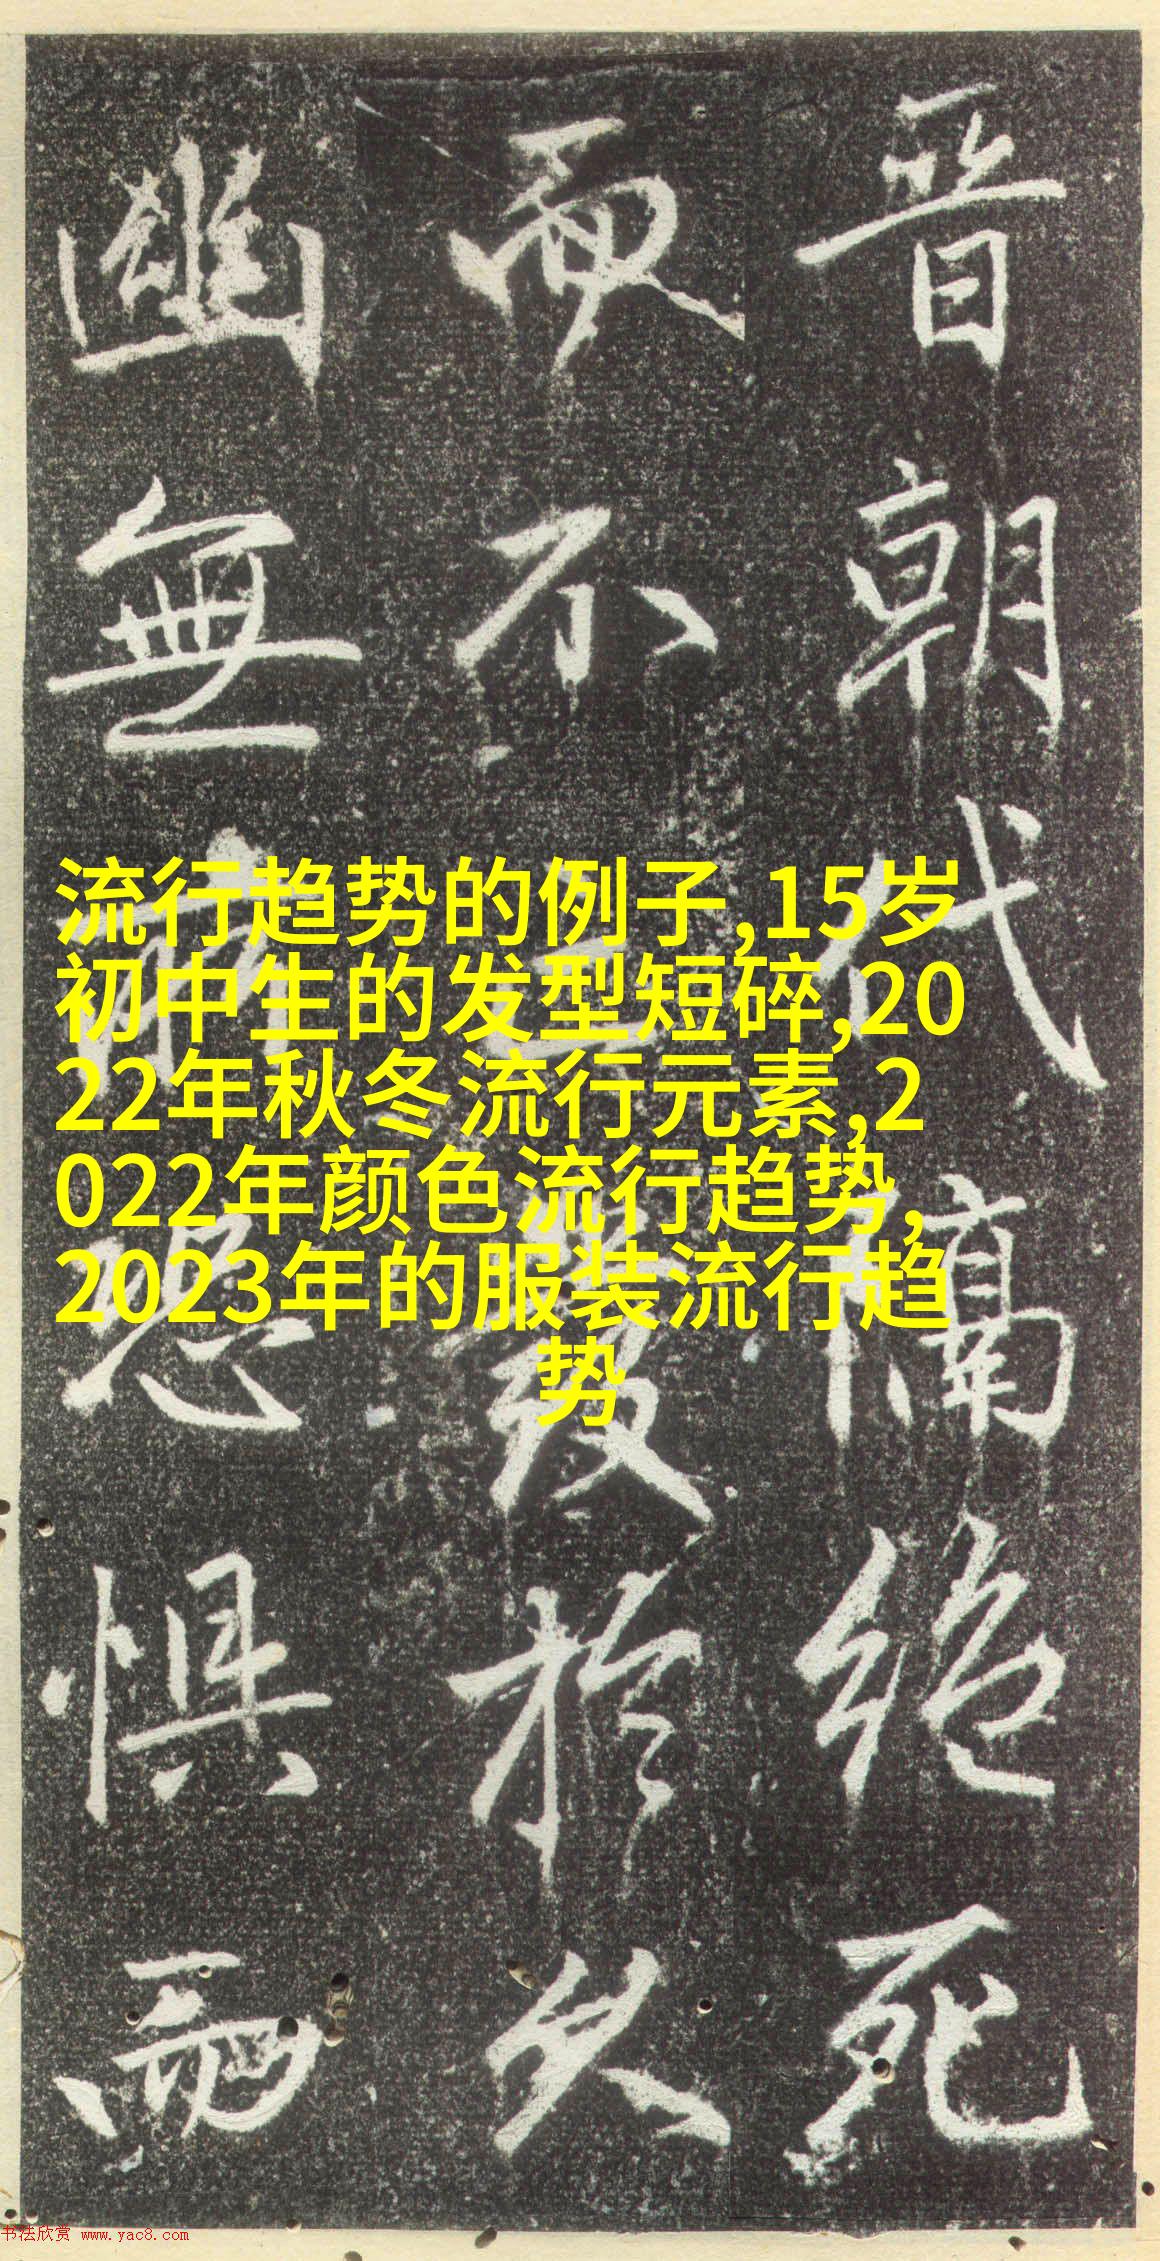 晋朝代隔絶死
而不發於久
幽無所恐懼而
流行趋势的例子,15岁
初中生的发型短碎,20
22年秋冬流行元素,2
022年颜色流行趋势,
2023年的服装流行趋
势
书法欣赏 www.yac8.com